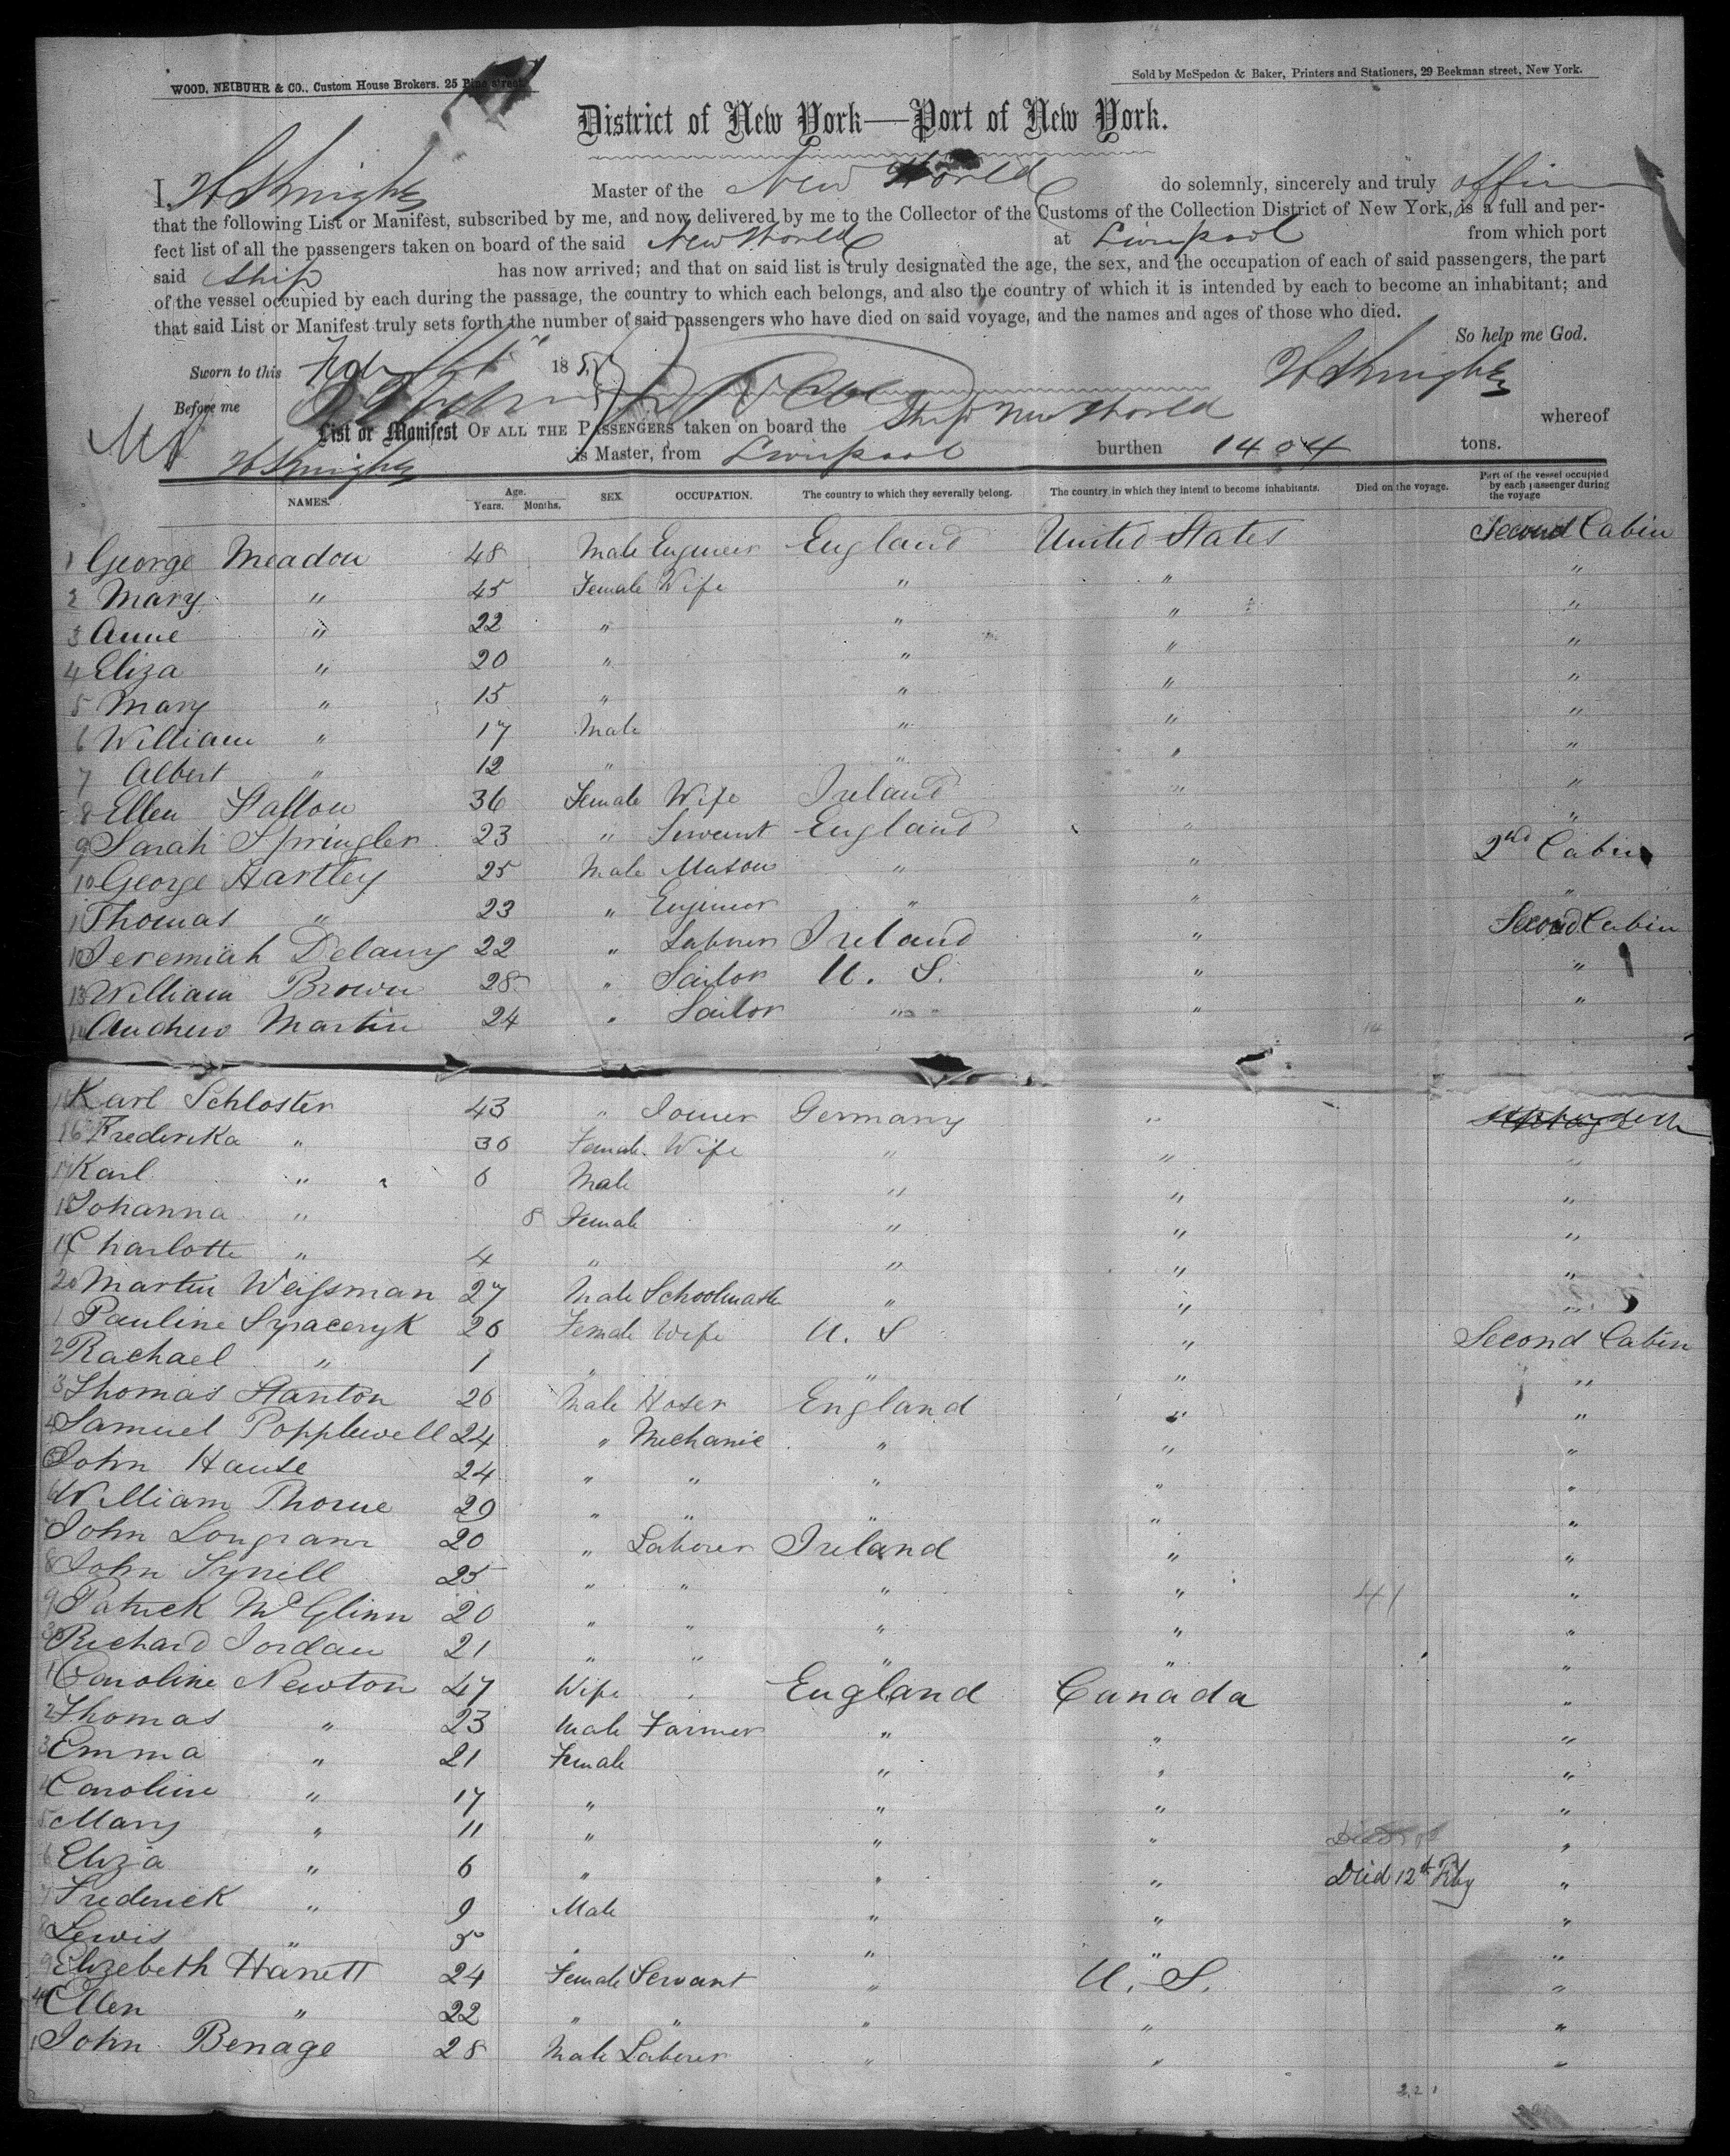 WOOD, NEIBUHR & CO., Custom House Brokers. 25 Pine street.
Sold by McSpedon & Baker, Printers and Stationers, 29 Beekman street, New York.
District of New York—Port of New York.
I, Knight Master of the New World do solemnly, sincerely and truly
that the following List or Manifest, subscribed by me, and now delivered by me to the Collector of the Customs of the Collection District of New York, is a full and per-
fect list of all the passengers taken on board of the said New World at Liverpool from which port
said Ship has now arrived; and that on said list is truly designated the age, the sex, and the occupation of each of said passengers, the part
of the vessel occupied by each during the passage, the country to which each belongs, and also the country of which it is intended by each to become an inhabitant; and
that said List or Manifest truly sets forth the number of said passengers who have died on said voyage, and the names and ages of those who died.
So help me God.
Sworn to this 185 Knight
Before me
List or Manifest OF ALL THE PASSENGERS taken on board the Ship New World whereof
Knight is Master, from Liverpool burthen 1404 tons.
NAMES. Age. Years. Months. SEX. OCCUPATION. The country to which they severally belong. The country in which they intend to become inhabitants. Died on the voyage. Part of the vessel occupied by each passenger during the voyage
1 George Meadon 48 Male Engineer England United States Second Cabin
2 Mary " 45 Female Wife " " "
3 Anne " 22 " " " "
4 Eliza " 20 " " " "
5 Mary " 15 " " " "
6 William " 17 Male " " "
7 Albert " 12 " " " "
8 Ellen Fallon 36 Female Wife Ireland " "
9 Sarah Springler 23 " Servant England " "
10 George Hartley 25 Male Mason " " 2nd Cabin
11 Thomas " 23 " Engineer " " "
12 Jeremiah Delany 22 " Laborer Ireland " Second Cabin
13 William Brown 28 " Sailor U. S. " "
14 Andrew Martin 24 " Sailor " " "
14
Karl Schloster 43 " Joiner Germany "
16 Frederika " 30 Female Wife " " "
Karl " 6 Male " " "
18 Johanna " 8 Female " " "
19 Charlotte " 4 " " " "
20 Martin Weissman 27 Male Schoolmaster " " "
1 Pauline Syraceryk 26 Female Wife U. S " Second Cabin
2 Rachael " 1 " " " "
3 Thomas Stanton 26 Male Hoser England " "
4 Samuel Popplewell 24 " Mechanic " " "
5 John Hause 24 " " " " "
6 William Thorne 29 " " " " "
7 John Longram 20 " Laborer Ireland " "
8 John Tynell 25 " " " " "
9 Patrick McGlinn 20 " " " " 41 "
30 Richard Jordan 21 " " " " "
1 Caroline Newton 47 Wife " England Canada "
2 Thomas " 23 Male Farmer " " "
3 Emma " 21 Female " " "
4 Caroline " 17 " " " "
5 Mary " 11 " " " "
6 Eliza " 6 " " " Died 12th Feby "
7 Frederick " 9 Male " " "
8 Lewis " 5 " " " "
9 Elizebeth Harrett 24 Female Servant " U. S. "
40 Ellen " 22 " " " " "
1 John Benage 28 Male Laborer " " "
221